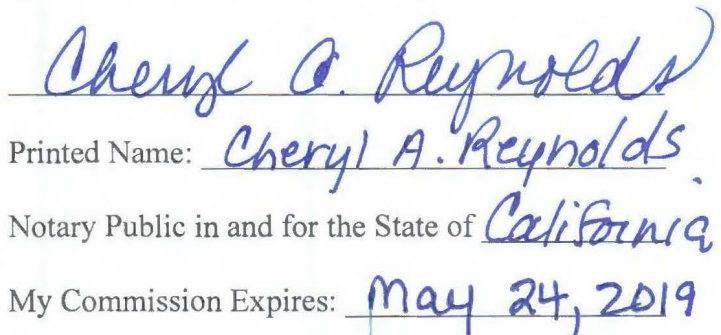 Cheryl A. Reynolds
Printed Name: Cheryl A. Reynolds
Notary Public in and for the State of California
My Commission Expires: May 24, 2019